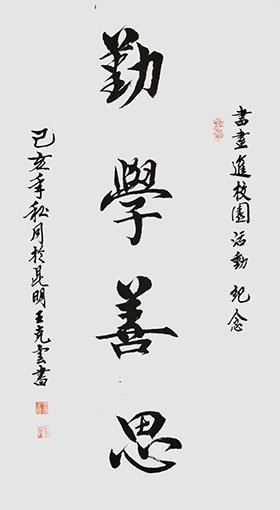 書畫進校園活動紀念
勤學善思
己亥年秋月於昆明王克雲書